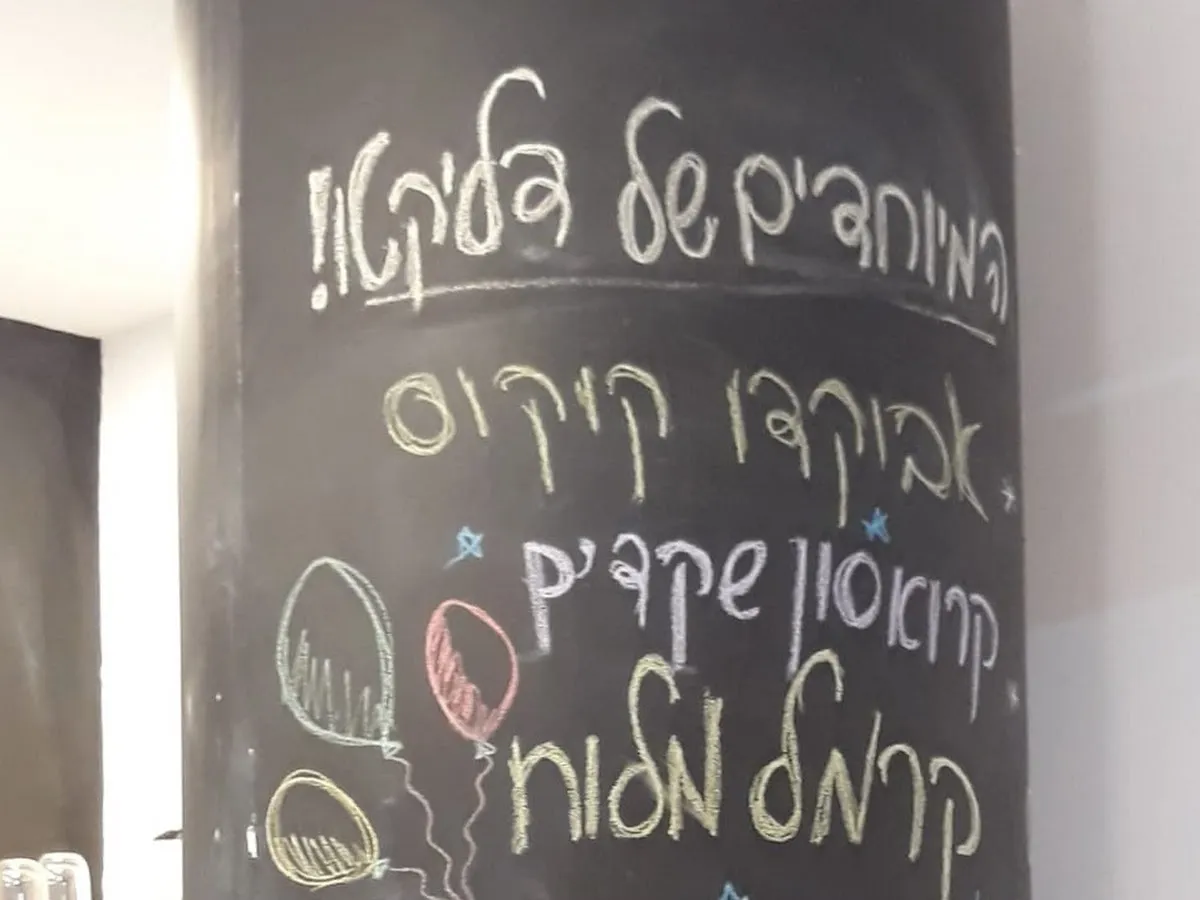 המיוחדים של דליקטו!
אבוקדו קיקוס
קרואסון שקדים
קרמל מלוח